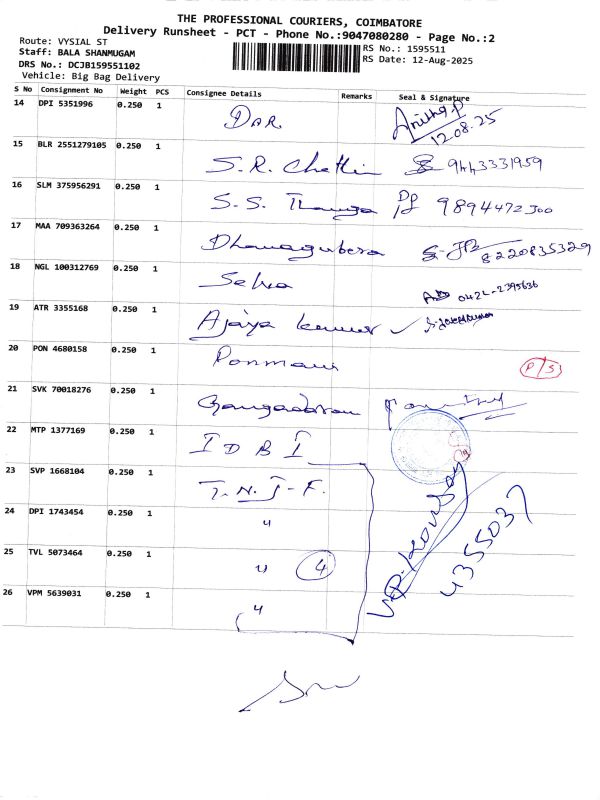 THE PROFESSIONAL COURIERS, COIMBATORE
Delivery Runsheet - PCT - Phone No.:9047080280 - Page No.:2
Route: VYSIAL ST
Staff: BALA SHANMUGAM
DRS No.: DCJB159551102
Vehicle: Big Bag Delivery
RS No.: 1595511
RS Date: 12-Aug-2025
S No Consignment No Weight PCS Consignee Details Remarks Seal & Signature
14 DPI 5351996 0.250 1 DAR 12.08.25
15 BLR 2551279105 0.250 1 S.R. 9443331959
16 SLM 375956291 0.250 1 S.S. Thanga 9894472300
17 MAA 709363264 0.250 1 Dhanagubera 8220835329
18 NGL 100312769 0.250 1 Selva 0422-2395636
19 ATR 3355168 0.250 1 Ajaya kumar ✓
20 PON 4680158 0.250 1 Ponmani P/S
21 SVK 70018276 0.250 1
22 MTP 1377169 0.250 1 IDBI
23 SVP 1668104 0.250 1 T.N.J.F.
24 DPI 1743454 0.250 1 "
25 TVL 5073464 0.250 1 " 4
26 VPM 5639031 0.250 1 "
4355037